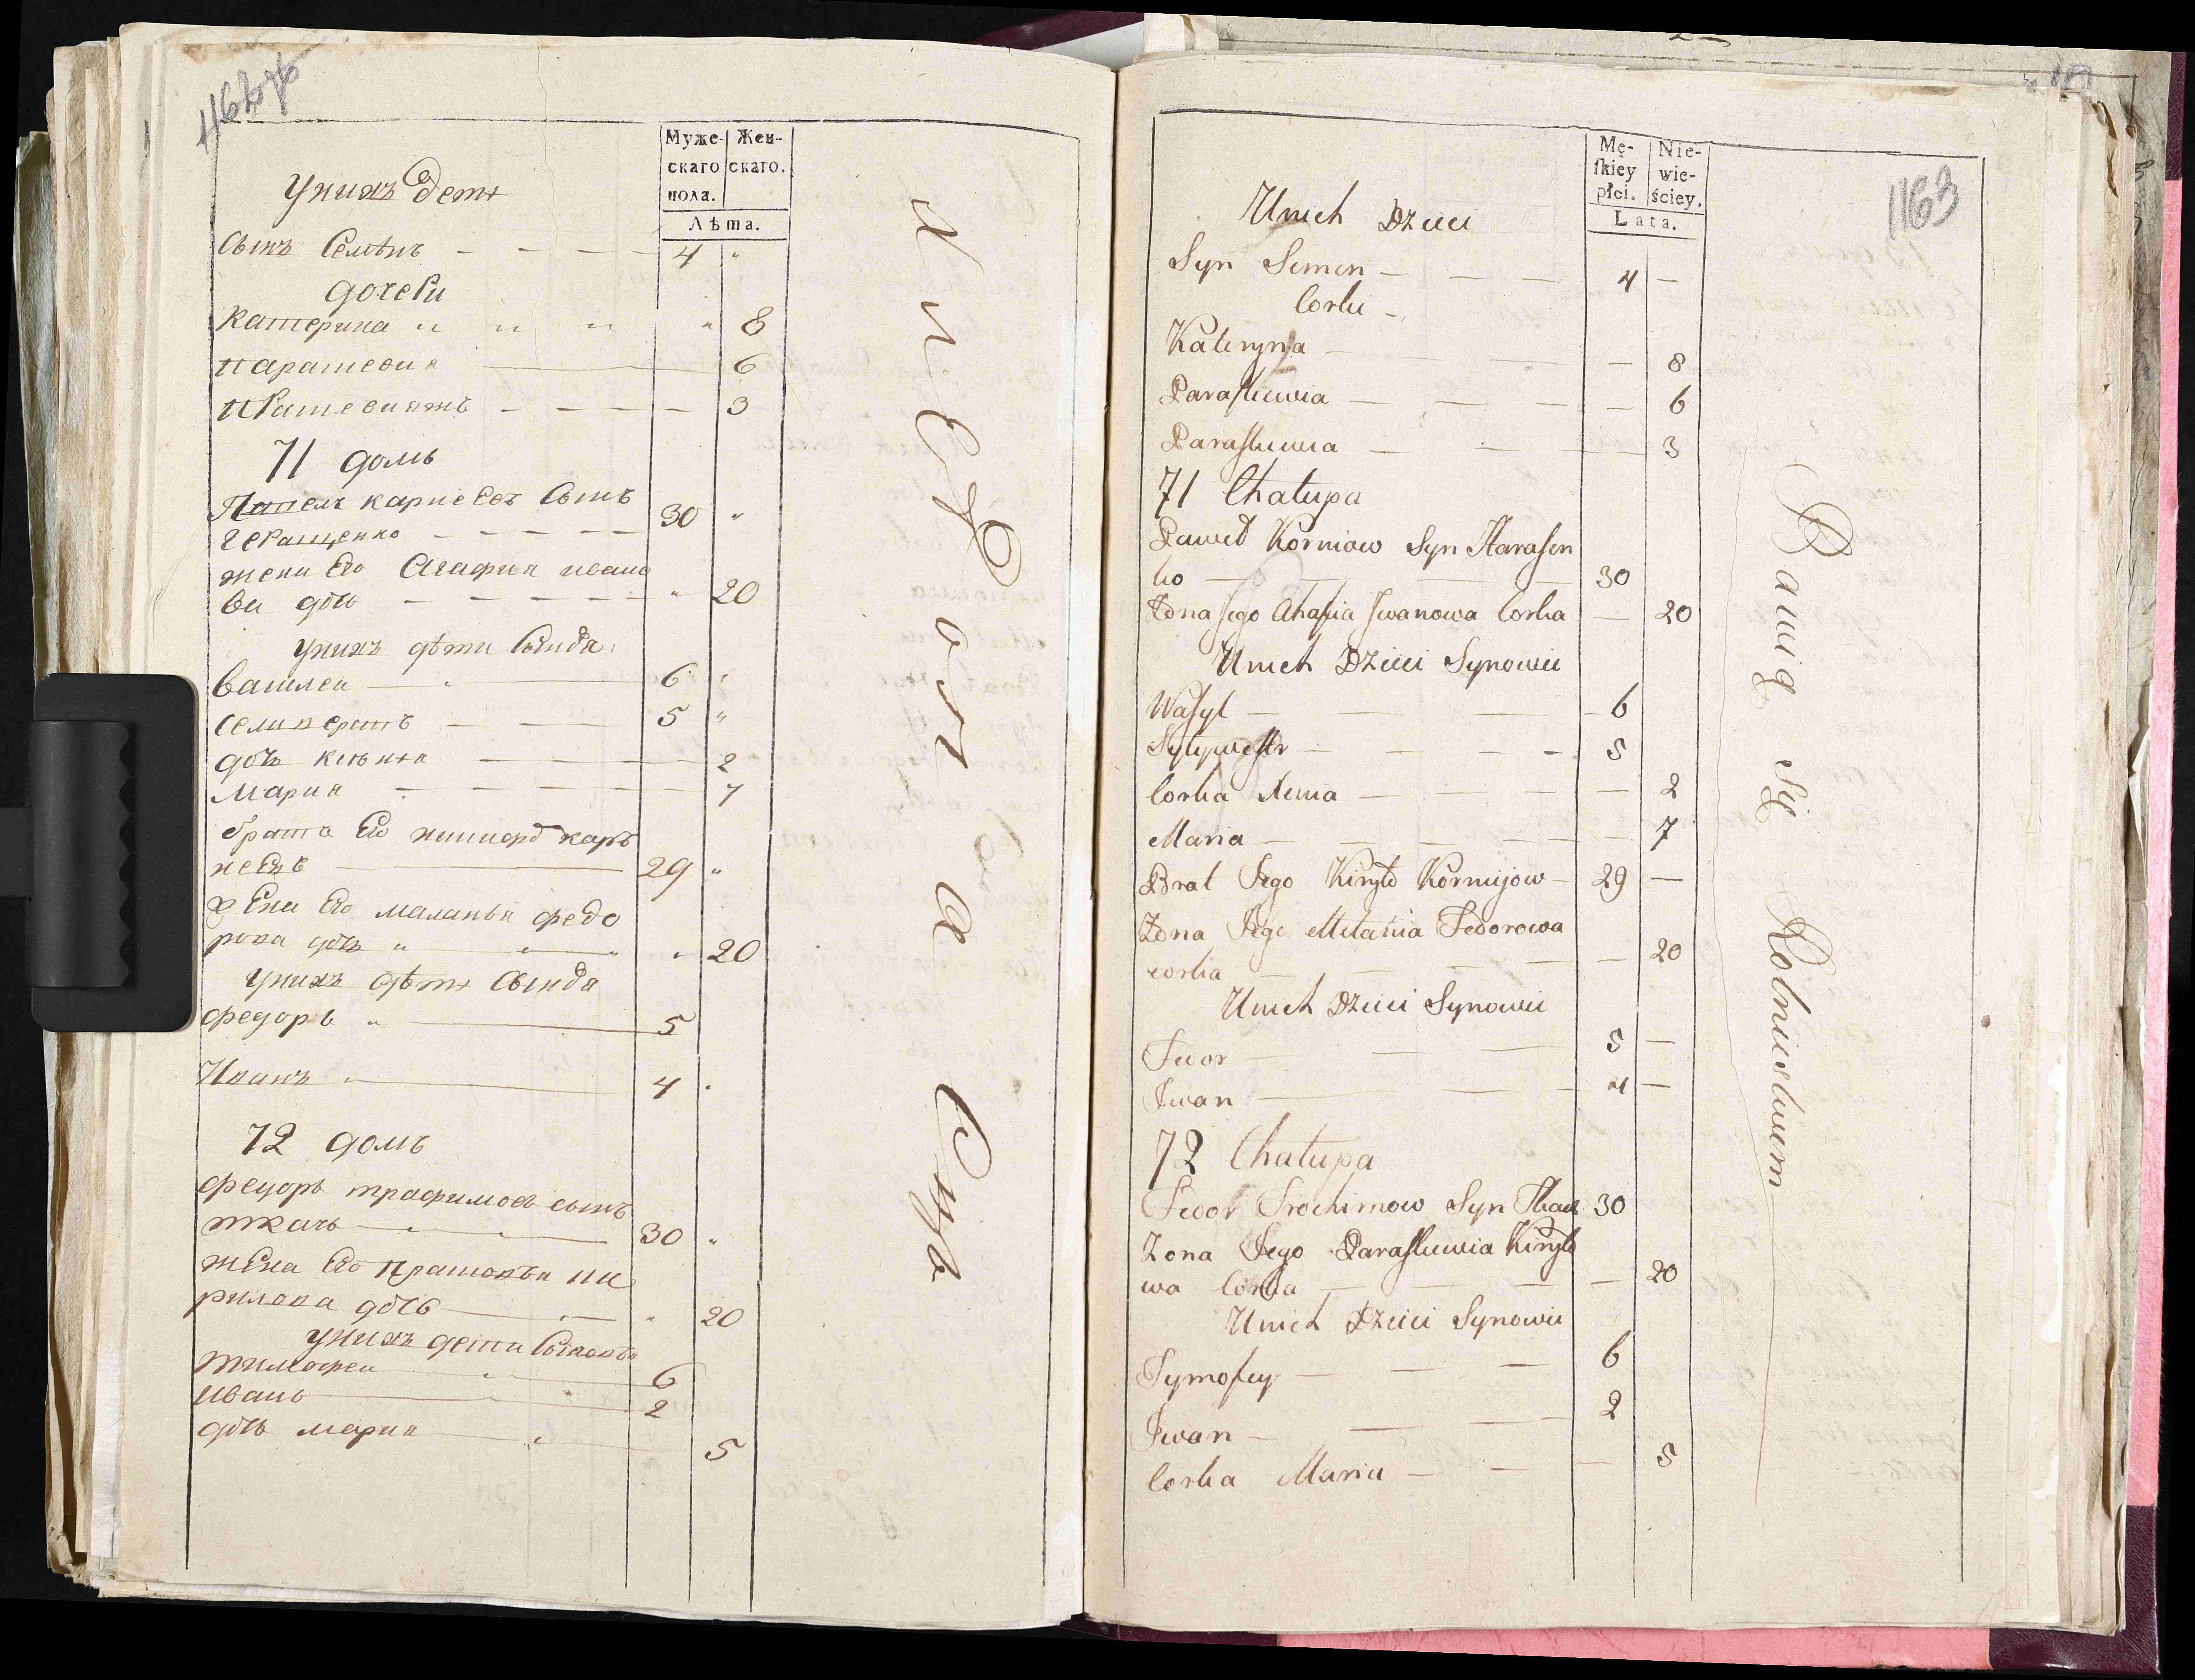 Муже- Жен-
скаго скаго.
пола.
Лѣта.
Унихъ Дети
Сынъ Семѣнъ 4
дочеви
Катерина 8
парасшевия 6
71 домъ
Павелъ карнеевъ Сынъ
30
жена Его Агафия ивано
ва дочь 20
унихъ дѣти Сынов
василеи 6
селивератъ 5
дочь 2
Мария 7
братъ Его кар
29
жена Его маланья федо
рова дочь 20
унихъ дѣти Сынов
федоръ 5
Иванъ 4
72 домъ
федоръ трафимовъ сынъ
ткачь 30
жена Его прасковья ки
рилова дочь 20
унихъ дети Синовъ
тимофеи 6
иванъ 2
дочь мария 5
1163
Mę- Nie-
skiey wie-
płci. ściey.
Lata.
Unich Dzieci
Syn Semen 4
Corki
Kateryna 8
Paraskiewia 6
Paraskiewia 3
71 Chałupa
Paweł Korniow Syn Harasen
ko 30
Żona Jego Ahafia Iwanowa Corka 20
Unich Dzieci Synowie
Wasyl 6
Sylywestr 5
Corka Xenia 2
Maria 7
Brat Jego Kiryło Kornijow 29
Żona Jego Melania Fedorowa
corka 20
Unich Dzieci Synowie
Fedor 5
Iwan 4
72 Chałupa
Fedor Trochimow Syn Tkacz 30
Zona Jego Paraskiewia Kiryło
wa Corka 20
Unich Dzieci Synowie
Tymofey 6
Iwan 2
Corka Maria 5
Bawią się Rolnictwem